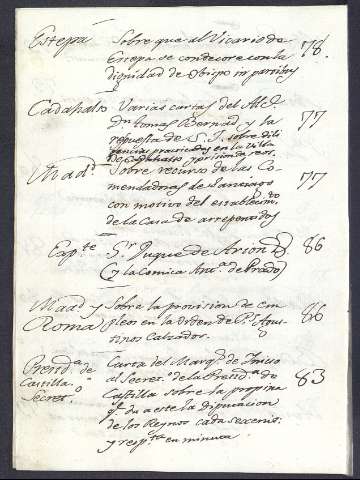 Estepa Sobre que al Vicario de
Estepa se condecore con la 78.
dignidad de Obispo in partibus
Cadahalso Varias cartas del Alc.e
Dn. Tomas Bernad, y la 77
respuesta de S. I. sobre dili
gencias practicadas en la Villa
de Cadahalso por
Mad.d Sobre recurso de las Co-
mendadoras de Santiago 77
con motivo del establecim.to
de la Casa de arrepentidos
Exp.te S.r Duque de Arion D. 86
(y la Comica Ant.a de Prado)
Mad.d y Sobre la provision de em
Roma pleos en la Orden de P.s Agus- 86
tinos Calzados.
Presid.a de Carta del Marq.s de
Castilla o al Secret.o de la Presid.a de 83
Secret.o Castilla sobre la propina
q.e da a este la diputacion
de los Reynos cada sexenio
y resp.ta en minuta